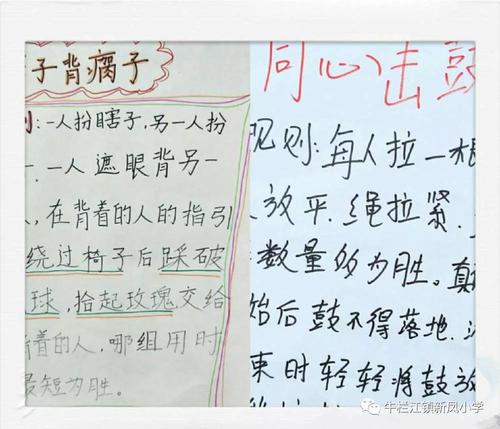 子背瘸子
则:一人扮瞎子,另一人扮
一人遮眼背另一
,在背着的人的指引
绕过椅子后踩破
球,拾起玫瑰交给
着的人,哪组用时
最短为胜。
同心击鼓
规则:每人拉一根
放平,绳拉紧.
数量多为胜。颠
始后鼓不得落地,
束时轻轻将鼓放
牛栏江镇新凤小学